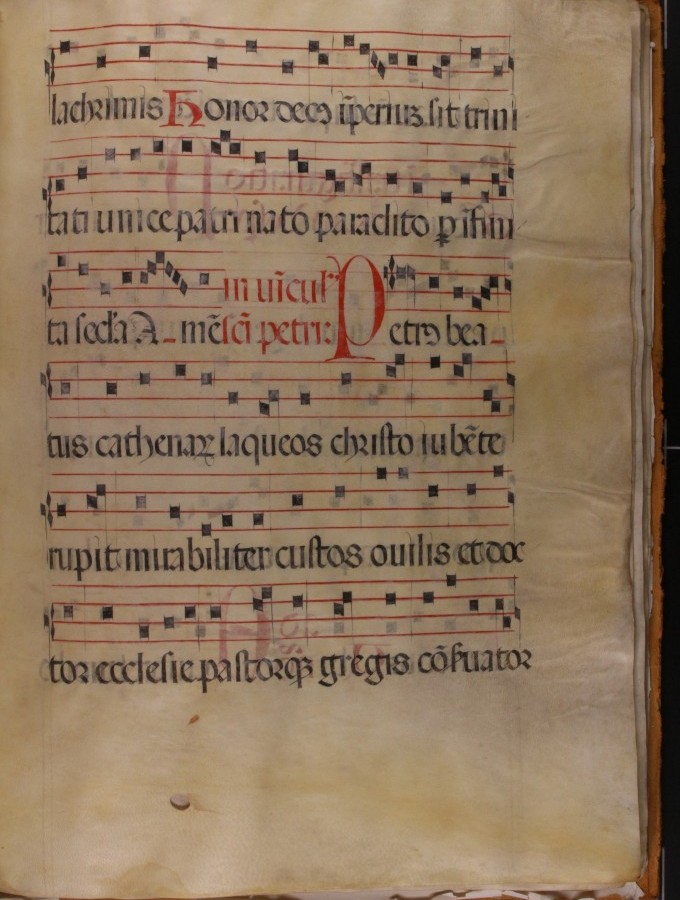 lachrimis Honor decꝰ īperiuꝫ sit trini
tati unice patri nato paraclito ꝑ īfini
ta secl̄a A-mē in uīcul'
sc̄i petri: Petrꝰ bea-
tus cathenaꝝ laqueos christo iubēte
rupit mirabiliter custos ouilis et doc
tor ecclesie pastorqꝫ gregis cōseruator